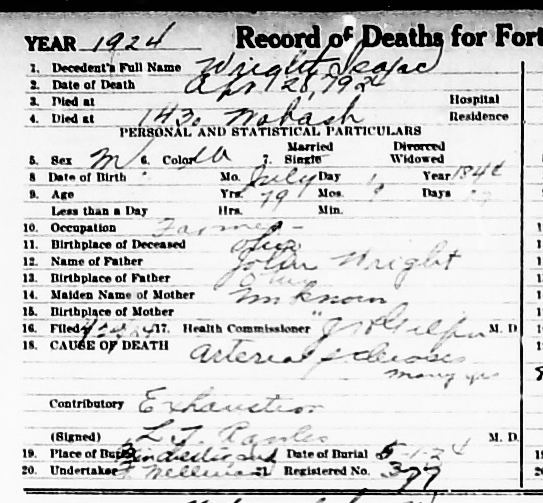 YEAR 1924 Record of Deaths for Fort
1. Decedent's Full Name Wright, Isaac
2. Date of Death Apr 28, 1924
3. Died at Hospital
4. Died at 1430 Wabash Residence
PERSONAL AND STATISTICAL PARTICULARS
5. Sex M 6. Color W 7. Married Single Divorced Widowed
8 Date of Birth Mo. July Day 1 Year 1844
9. Age Yrs. 79 Mos. 9 Days 27
Less than a Day Hrs. Min.
10. Occupation Farmer -
11. Birthplace of Deceased Ohio
12. Name of Father John Wright
13. Birthplace of Father
14. Maiden Name of Mother Unknown
15. Birthplace of Mother "
16. Filed 17. Health Commissioner M. D.
18. CAUSE OF DEATH Arterio sclerosis
many yrs
Contributory Exhaustion
(Signed) L. T. M. D.
19. Place of Burial Date of Burial 5-1-24
20. Undertaker 21. Registered No. 377